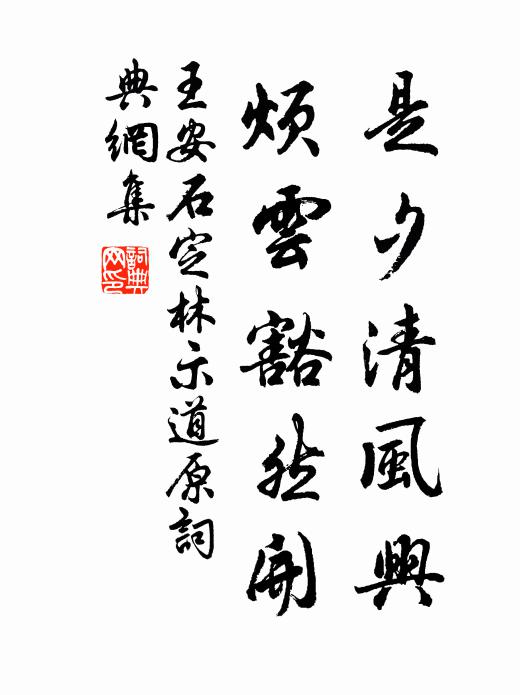 是夕清風興
煩雲豁然開
王安石定林示道原詞
典網集
詞典
网印